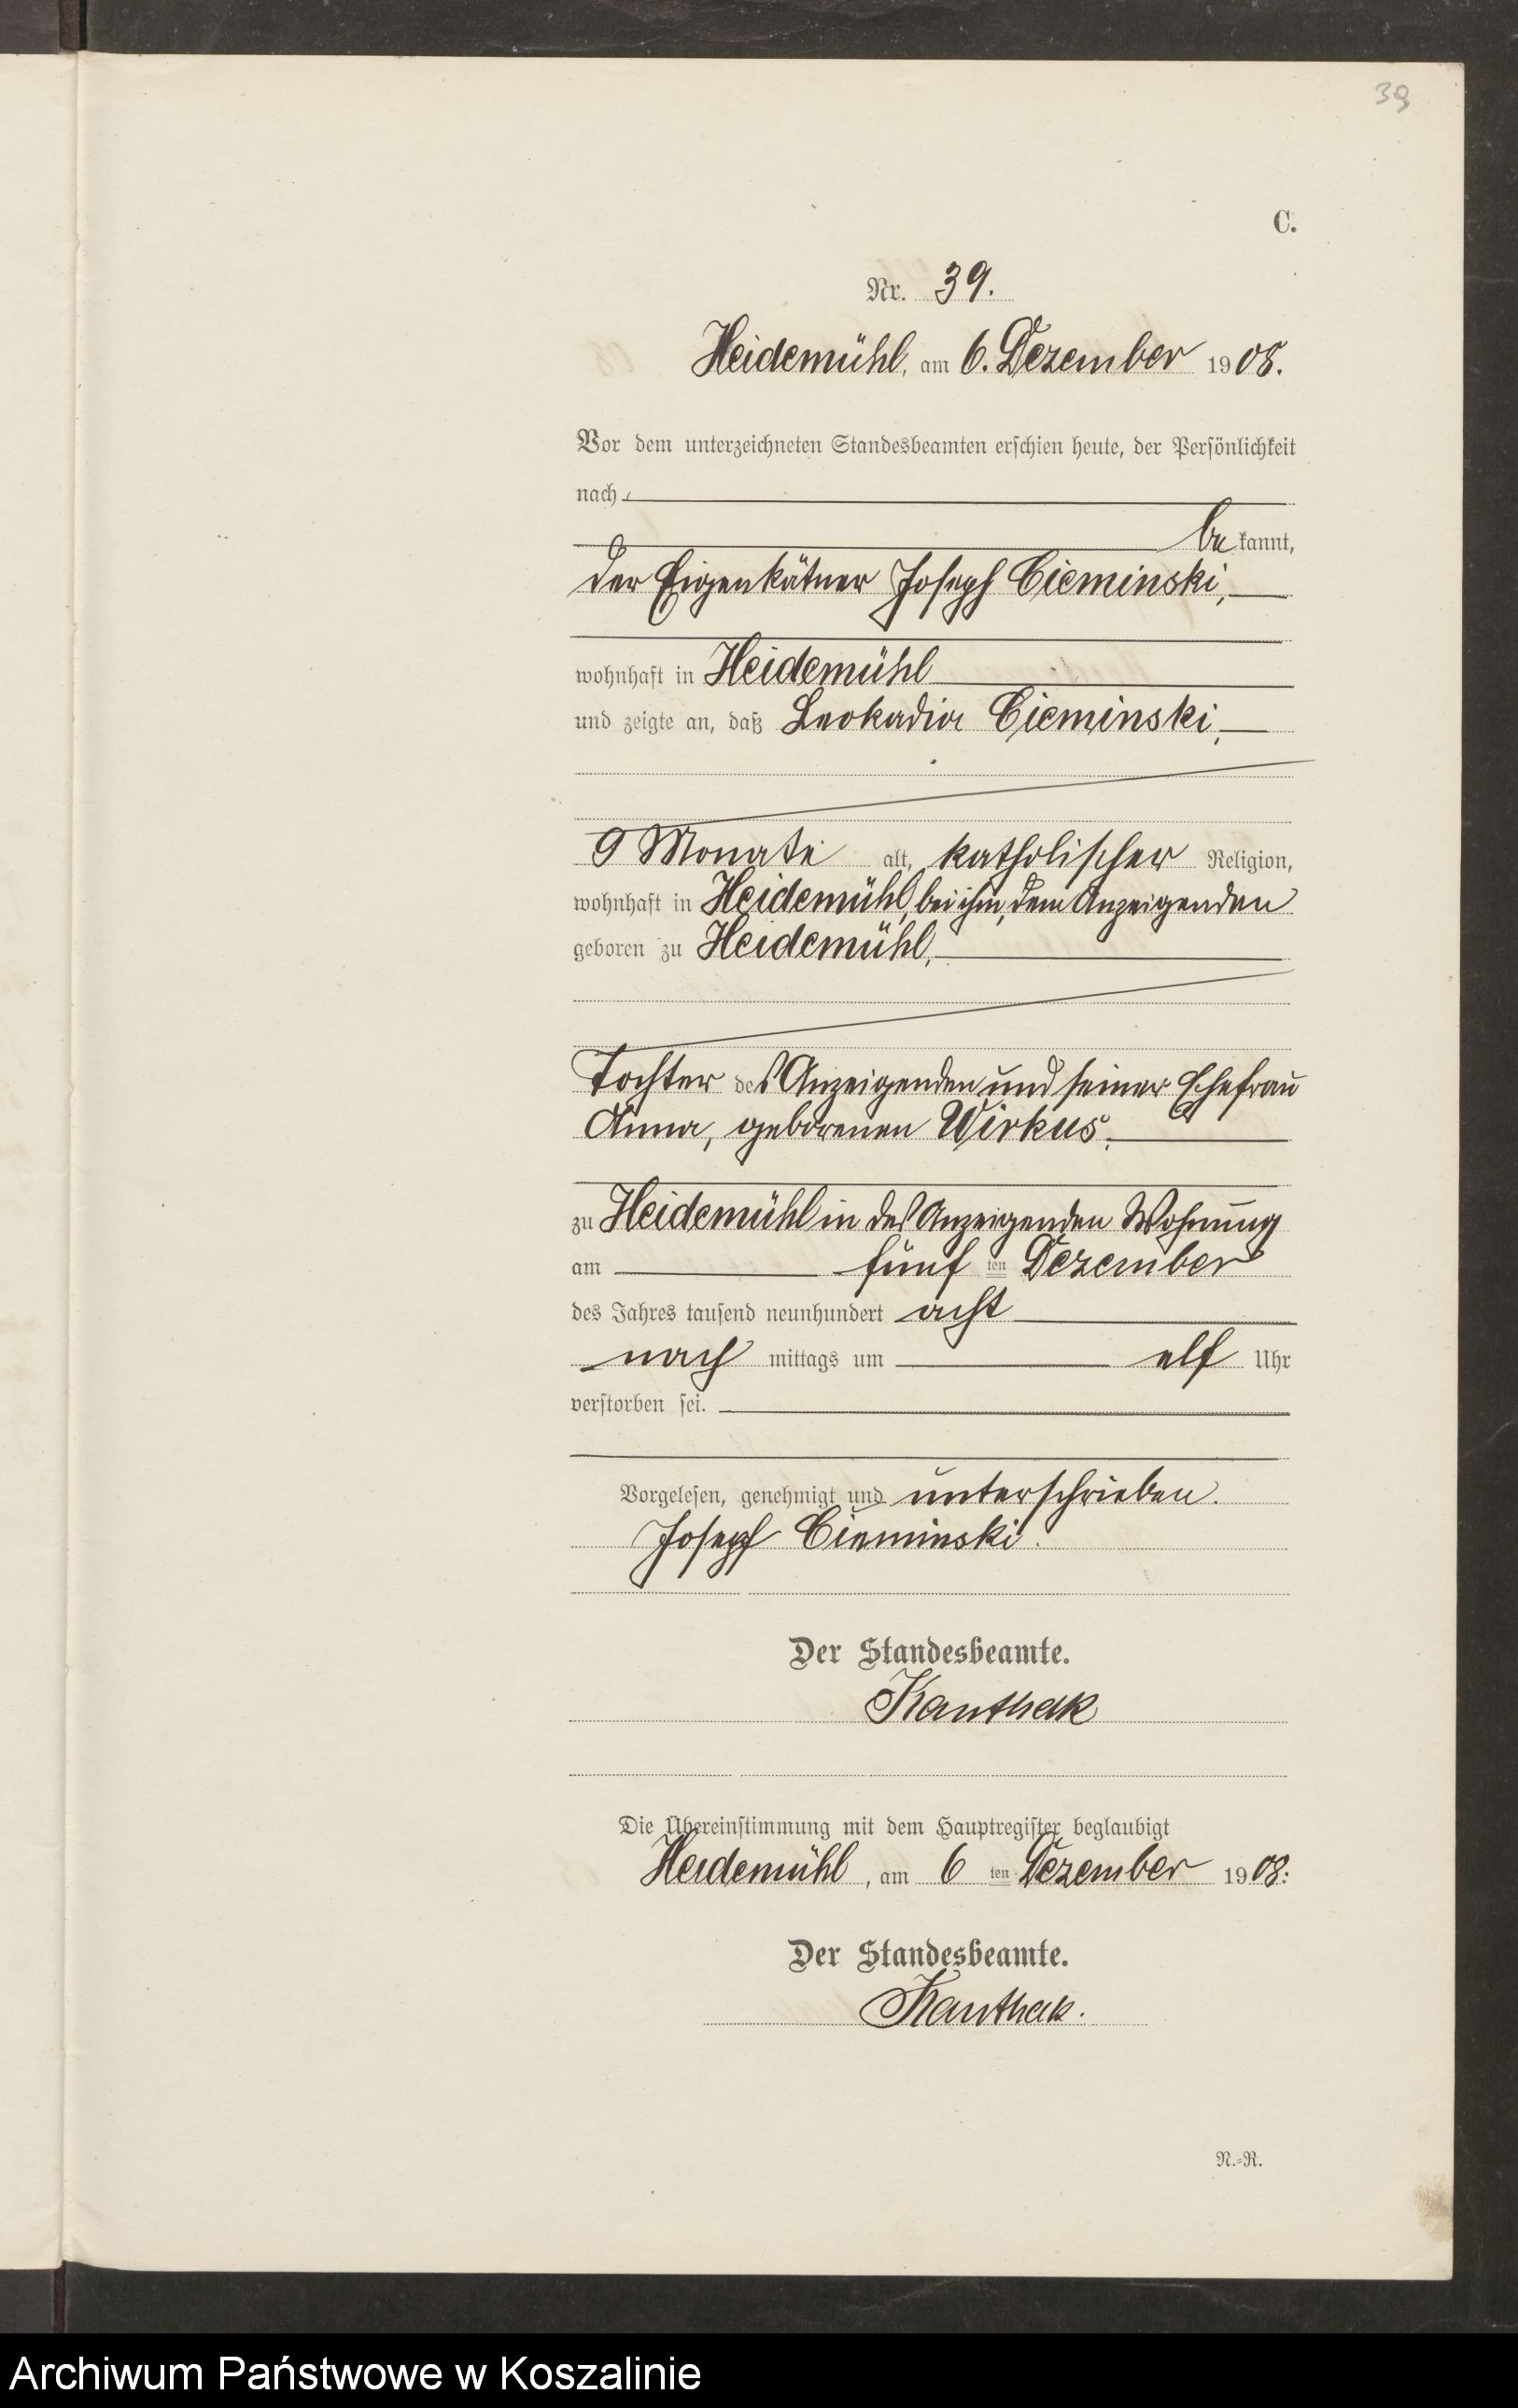 39
C.
Nr. 39.
Heidemühl, am 6. Dezember 1908.
Vor dem unterzeichneten Standesbeamten erschien heute, der Persönlichkeit
nach
bekannt,
der Eigenkätner Joseph Cieminski,
wohnhaft in Heidemühl
und zeigte an, daß Leokadia Cieminski,
9 Monate alt, katholischer Religion,
wohnhaft in Heidemühl, bei ihm, dem Anzeigenden
geboren zu Heidemühl,
Tochter des Anzeigenden und seiner Ehefrau
Anna, geborenen Wirkus,
zu Heidemühl in des Anzeigenden Wohnung
am fünf ten Dezember
des Jahres tausend neunhundert acht
nach mittags um elf Uhr
verstorben sei.
Vorgelesen, genehmigt und unterschrieben.
Joseph Cieminski.
Der Standesbeamte.
Kanthak
Die Übereinstimmung mit dem Hauptregister beglaubigt
Heidemühl, am 6 ten Dezember 1908.
Der Standesbeamte.
Kanthak.
N.-R.
Archiwum Państwowe w Koszalinie